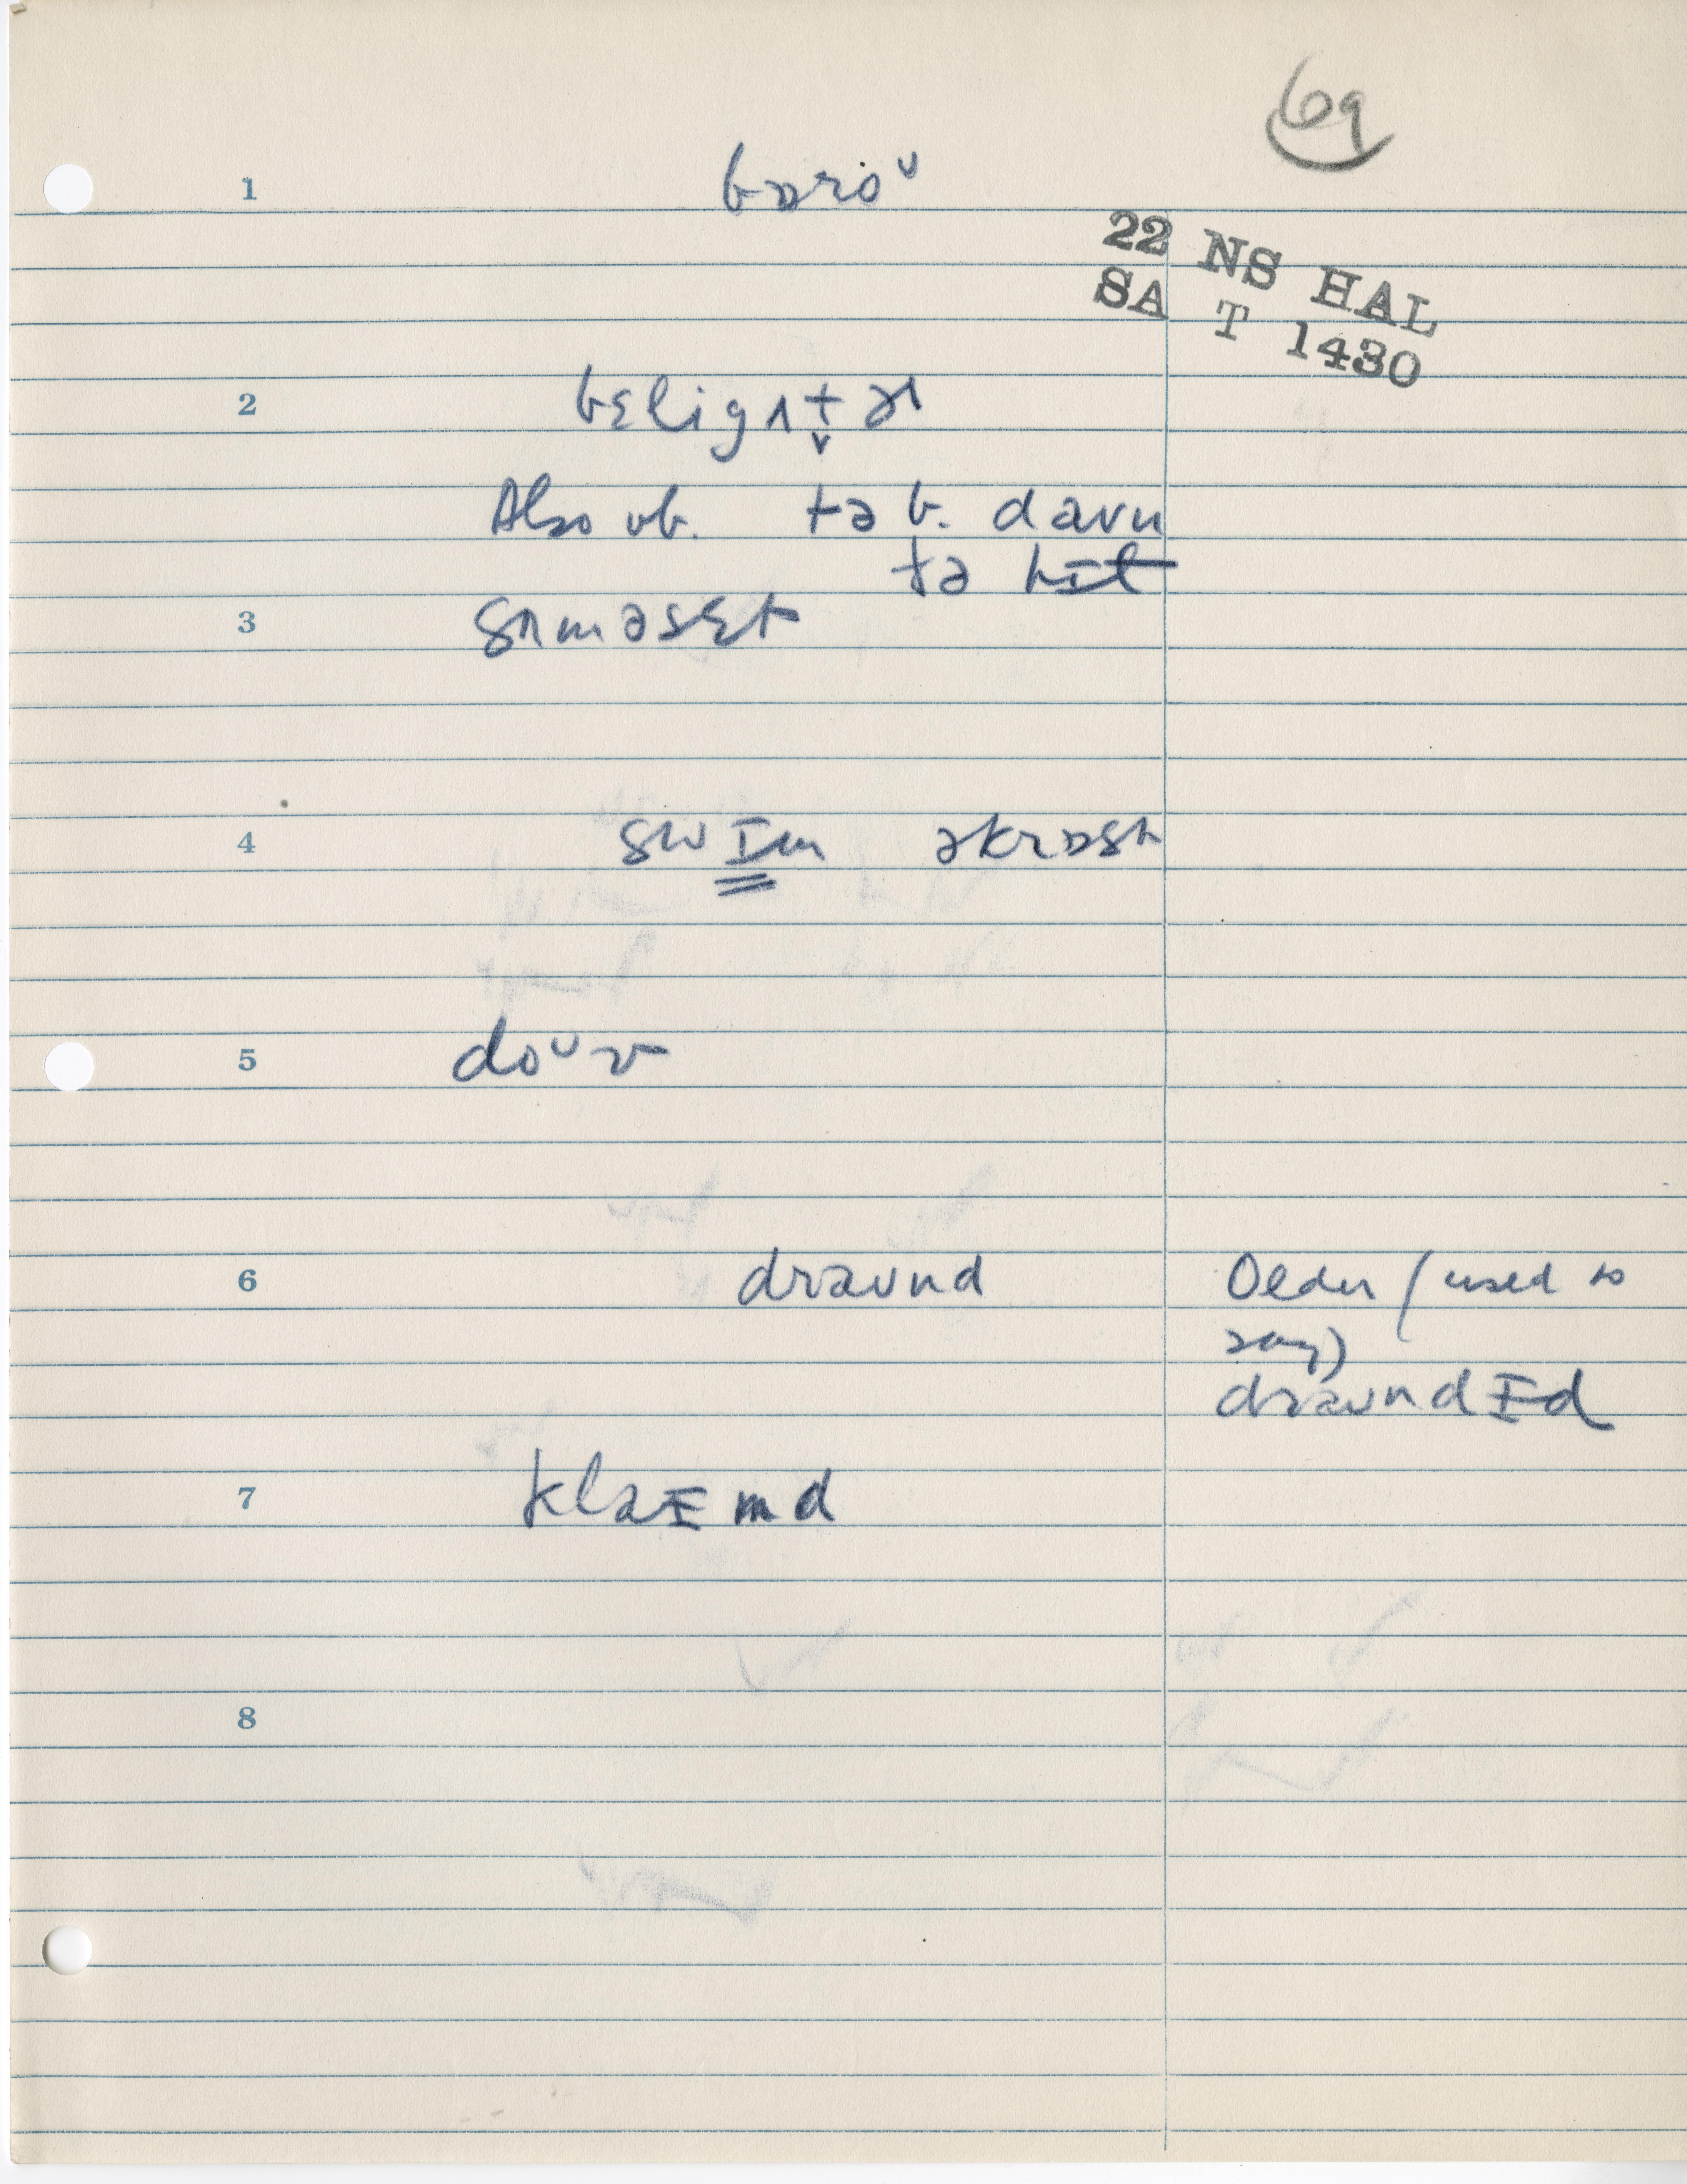 69
1 bɒroᶷ
22 NS HAL
SA T 1430
2 bɛligʌt̬ɚ
Also vb. tə b. daʊn
tə hɪt
3 sʌməsɛt
4 swɪm əkrɒst
5 doᶷv
6 draʊnd Older (used to
say)
draʊndɪd
7 klaɪmd
8